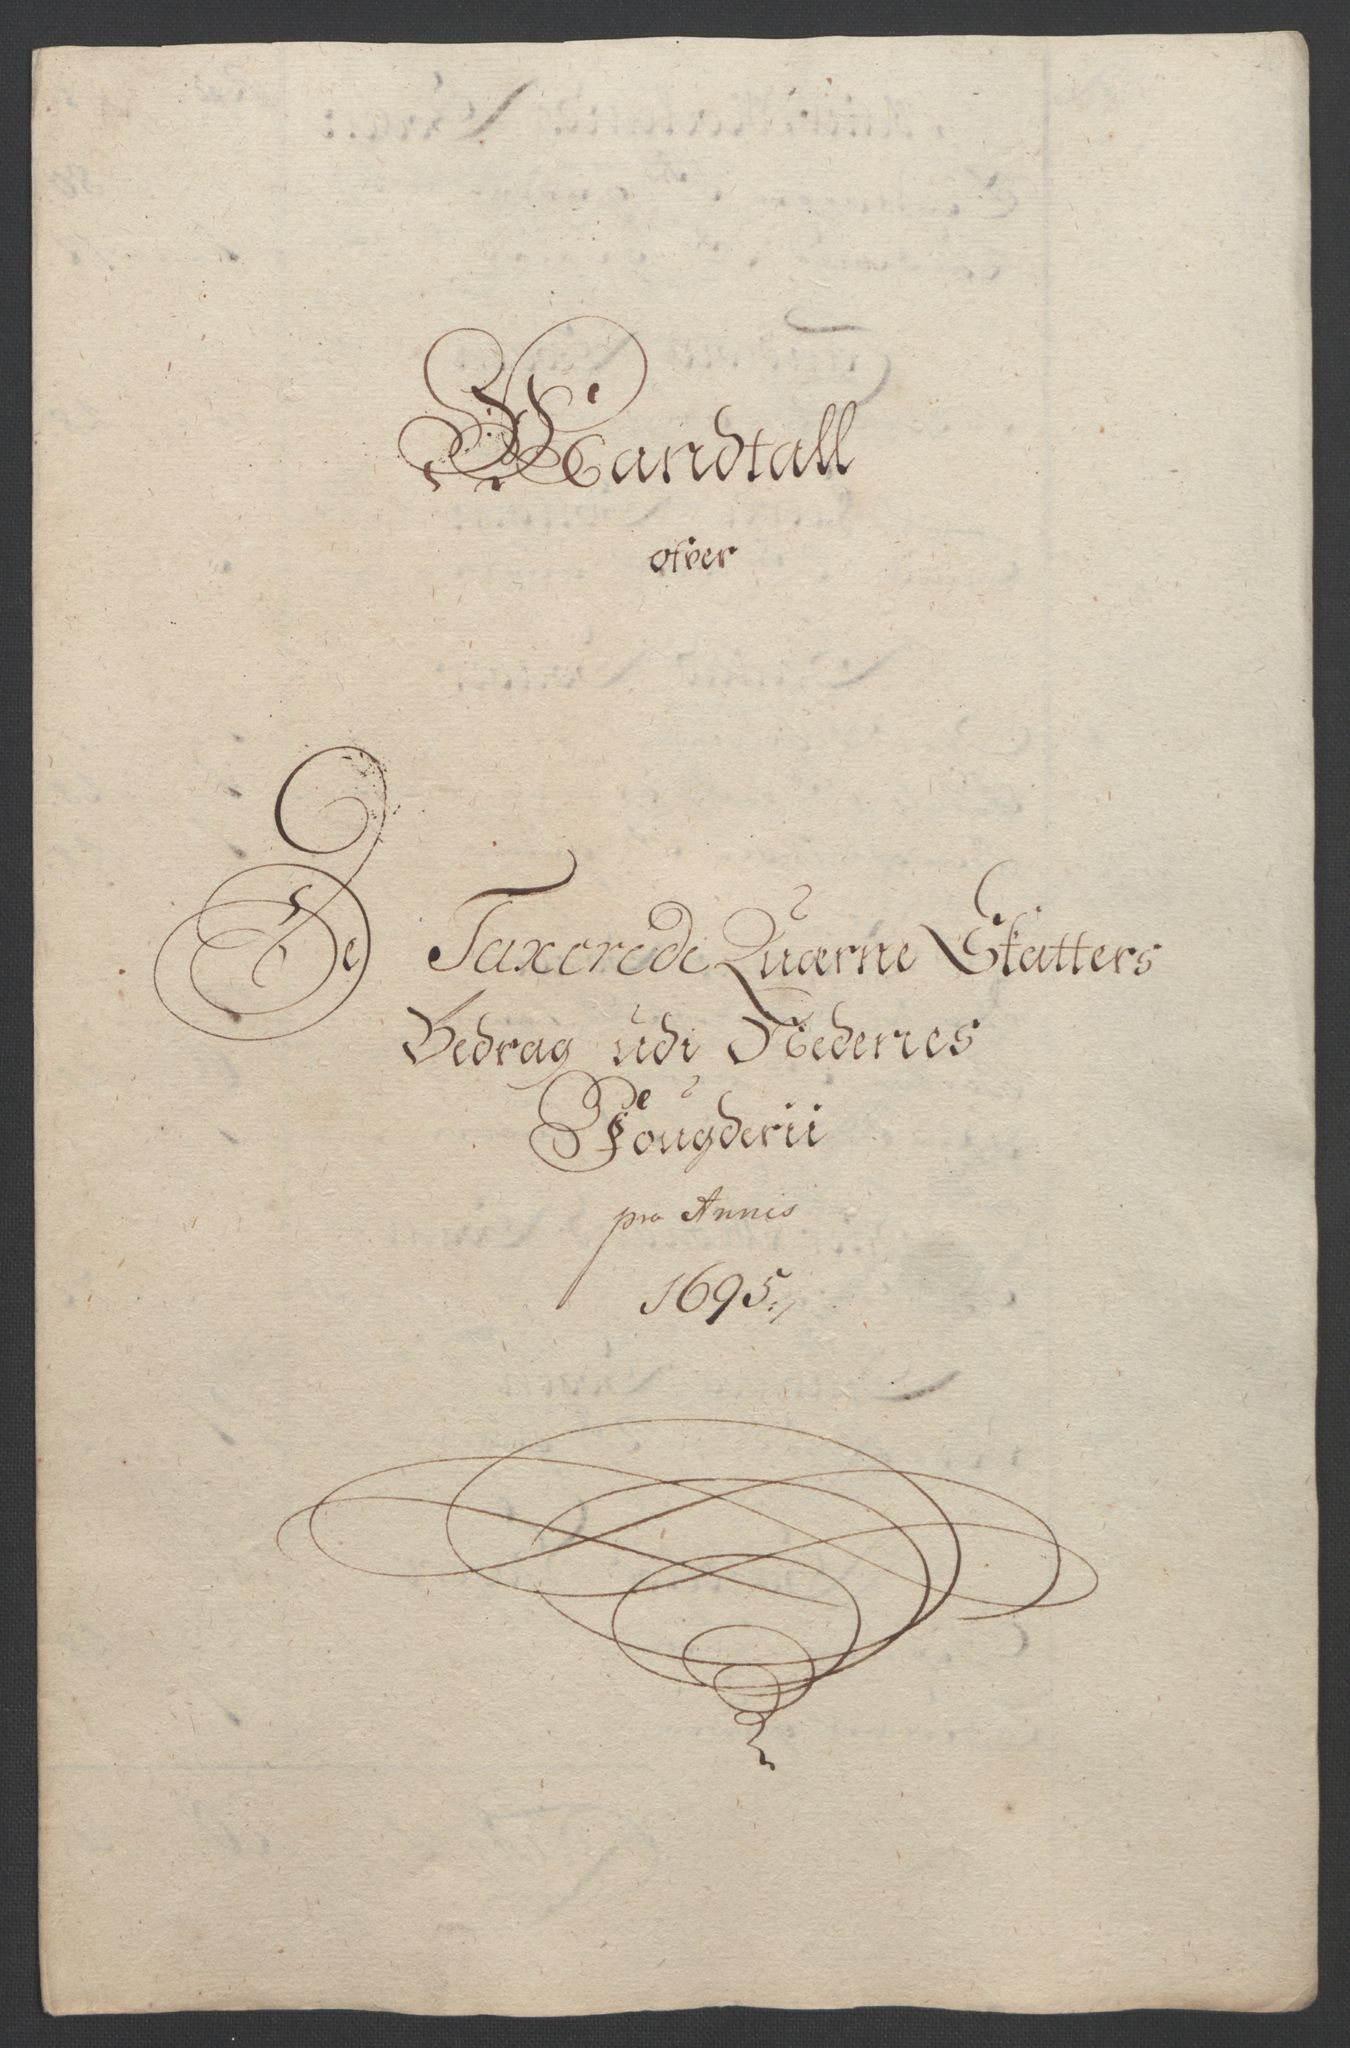 Mandtall
ofver
De Taxerede Quærne Skatters
Bedrag udi Nedenes
Fougderii
pro Annis
1695.